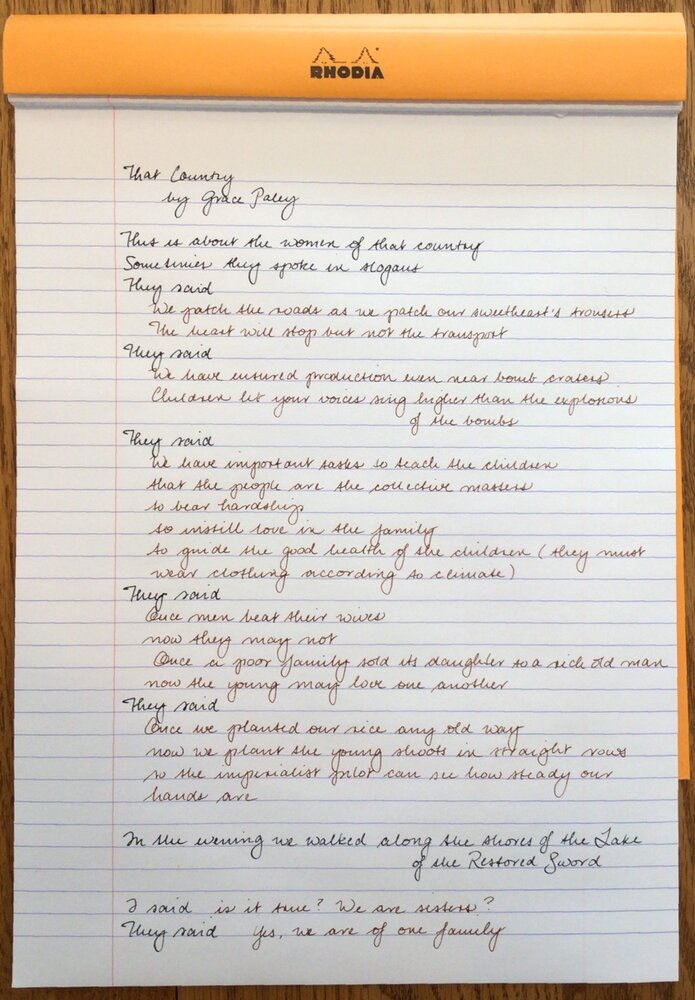 RHODIA
That Country
by Grace Paley
This is about the women of that country
Sometimes they spoke in slogans
They said
We patch the roads as we patch our sweetheart's trousers
The heart will stop but not the transport
They said
We have ensured production even near bomb craters
Children let your voices sing higher than the explosions
of the bombs
They said
We have important tasks to teach the children
that the people are the collective masters
to bear hardship
to instill love in the family
to guide the good health of the children (they must
wear clothing according to climate)
They said
Once men beat their wives
now they may not
Once a poor family sold its daughter to a rich old man
now the young may love one another
They said
Once we planted our rice any old way
now we plant the young shoots in straight rows
so the imperialist pilot can see how steady our
hands are
In the evening we walked along the shores of the Lake
of the Restored Sword
I said is it true? We are sisters?
They said Yes, we are of one family